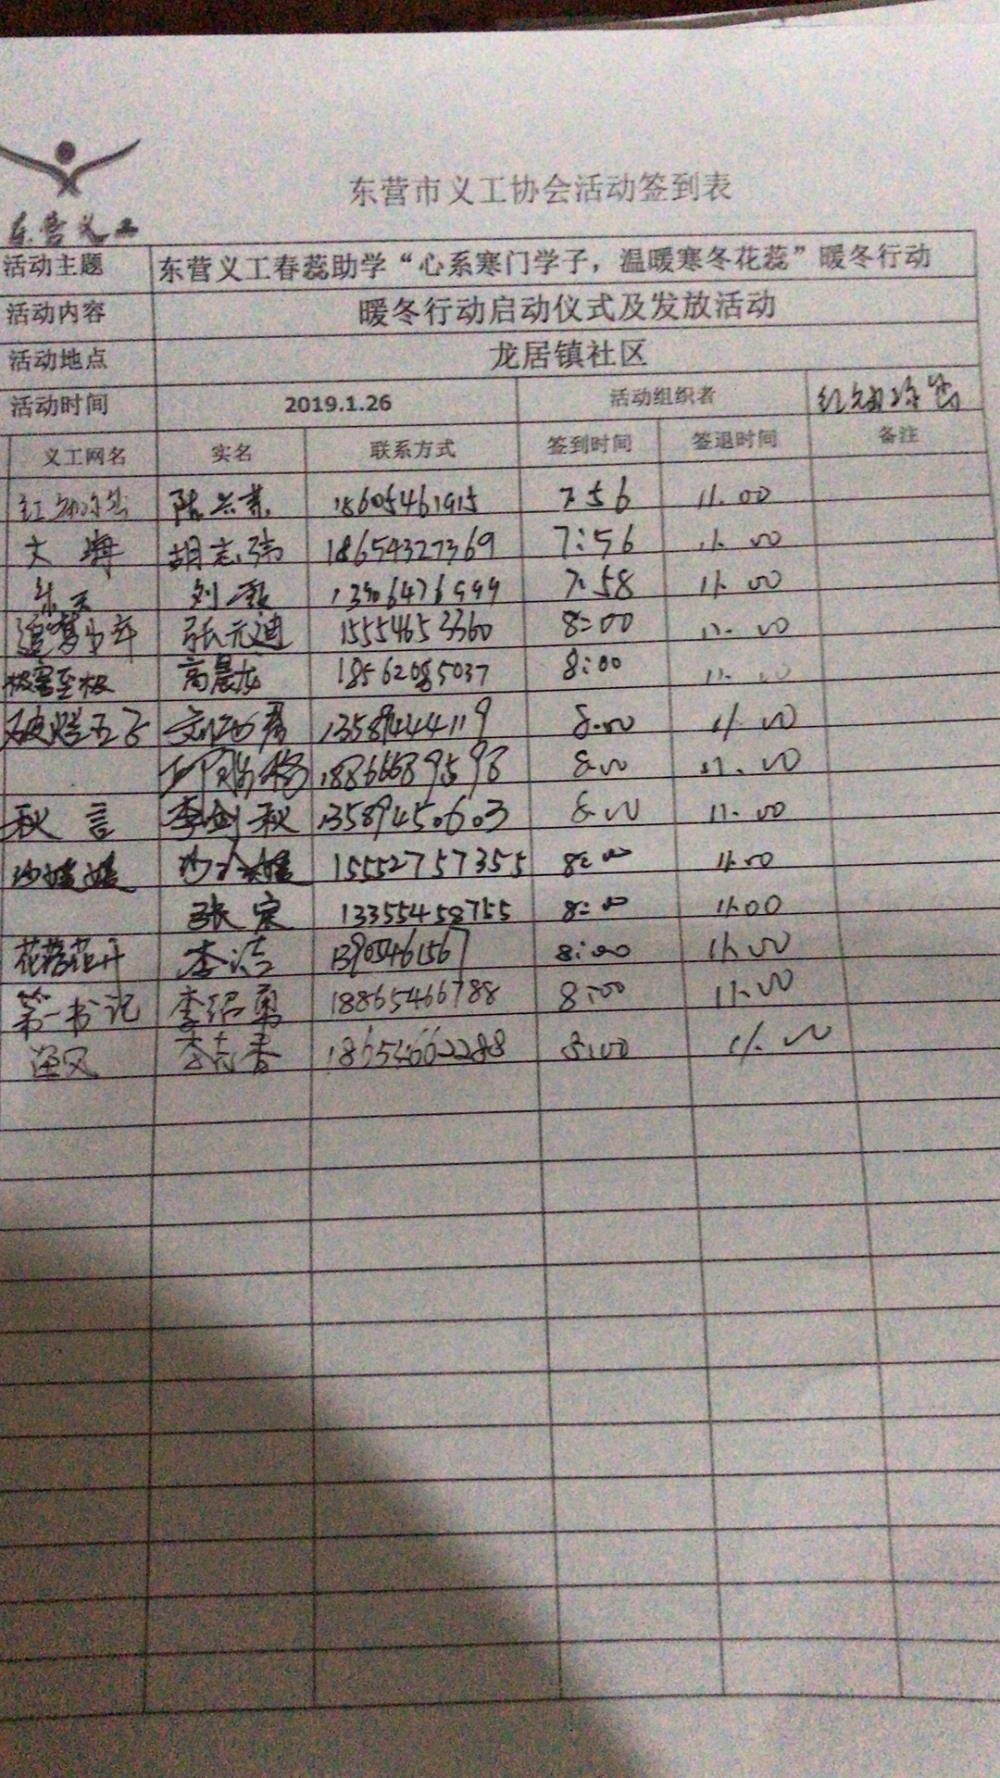 东营义工
东营市义工协会活动签到表
活动主题 东营义工春蕊助学“心系寒门学子，温暖寒冬花蕊”暖冬行动
活动内容 暖冬行动启动仪式及发放活动
活动地点 龙居镇社区
活动时间 2019.1.26 活动组织者
义工网名 实名 联系方式 签到时间 签退时间 备注
18605461915 7:56 11.00
大海 胡志强 18654327369 7:56 11.00
乐天 刘 7:58 11.00
追梦少年 张元迪 15554653360 8:00 11.00
极害至极 高晨龙 18562085037 8:00 11.00
破烂王子 13589444119 8:00 11.00
18866689598 8:00 11.00
秋言 李剑秋 13589450603 8:00 11.00
沙媛媛 沙媛媛 15552757355 8:00 11.00
张宾 13355458755 8:00 11.00
花落花开 李洁 8:00 11.00
第一书记 李绍勇 18865466788 8:00 11.00
李志香 18654662288 8:00 11.00